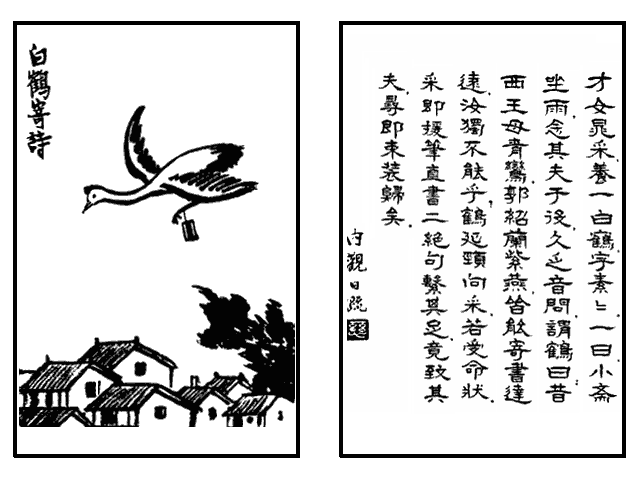 白鶴寄詩
才女晁采養一白鶴字素〻一日小斋
坐雨念其夫于役久乏音問謂鶴曰昔
西王母青鸞郭紹蘭紫燕皆能寄書達
遠汝獨不能乎鶴延頸向采若受命狀
采即援筆直書二絕句繫其足竟致其
夫尋即束装歸矣
内觀日疏